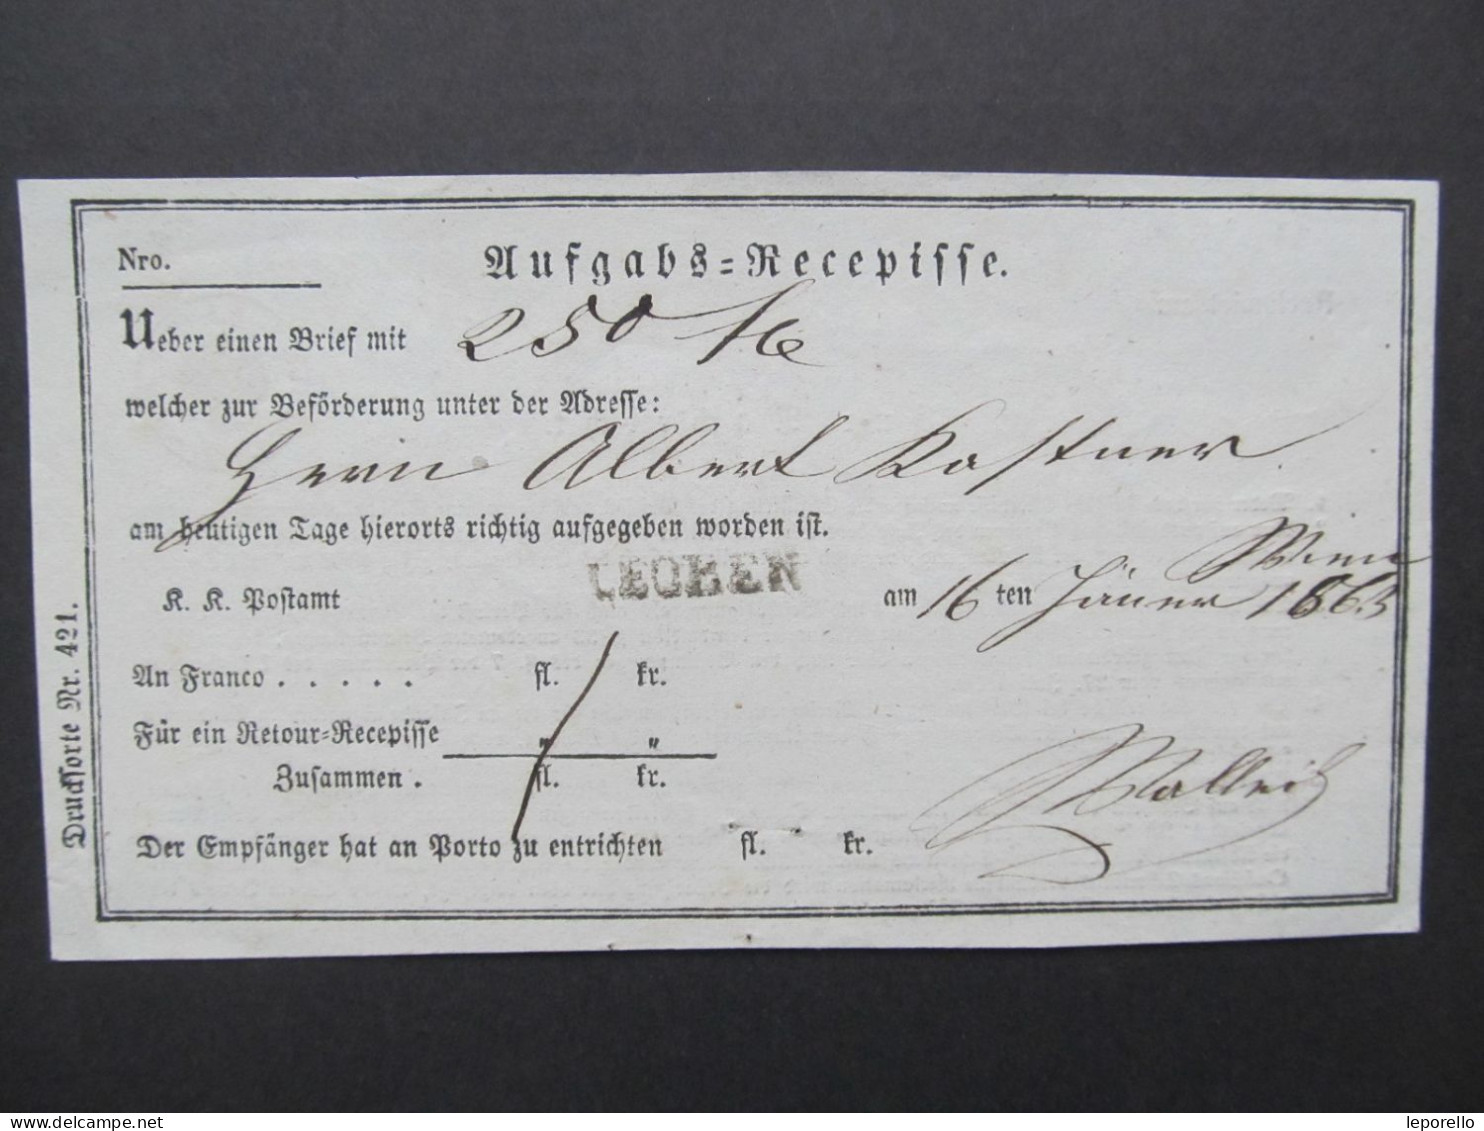 Nro.
Aufgabs=Recepisse.
Ueber einen Brief mit 250 fl
welcher zur Beförderung unter der Adresse:
Herrn Albert Kastner
am heutigen Tage hierorts richtig aufgegeben worden ist.
Wien
K. K. Postamt LEOBEN am 16 ten Jäner 1863
An Franco . . . . . fl. kr.
Für ein Retour=Recepisse " "
Zusammen . fl. kr.
Der Empfänger hat an Porto zu entrichten fl. kr.
Drucksorte Nr. 421.
leporello